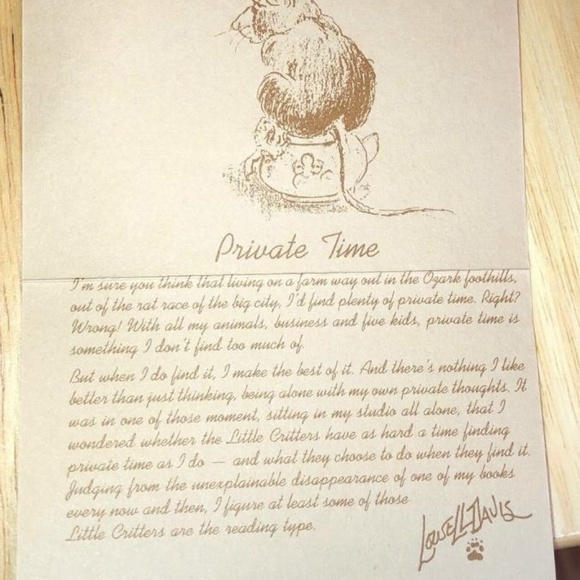 Private Time
I'm sure you think that living on a farm way out in the Ozark foothills,
out of the rat race of the big city, I'd find plenty of private time. Right?
Wrong! With all my animals, business and five kids, private time is
something I don't find too much of.
But when I do find it, I make the best of it. And there's nothing I like
better than just thinking, being alone with my own private thoughts. It
was in one of those moment, sitting in my studio all alone, that I
wondered whether the Little Critters have as hard a time finding
private time as I do — and what they choose to do when they find it.
Judging from the unexplainable disappearance of one of my books
every now and then, I figure at least some of those
Little Critters are the reading type.
Lowell Davis